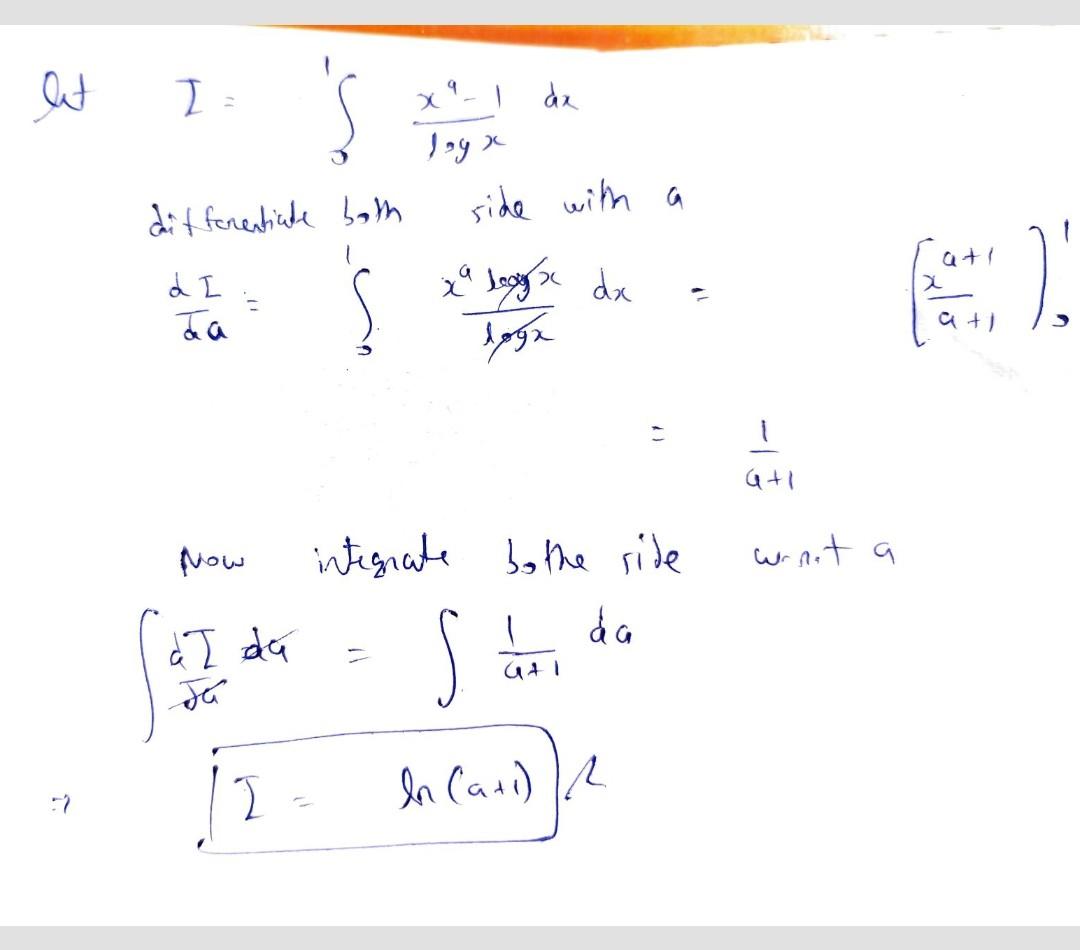 let I = ∫₀¹ (x^a - 1)/(log x) dx
differentiate both side with a
dI/da = ∫₀¹ (x^a log x)/(log x) dx = [x^(a+1)/(a+1)]₀¹
= 1/(a+1)
Now integrate bothe side w.r.t a
∫ dI/da da = ∫ 1/(a+1) da
⇒ I = ln(a+1)